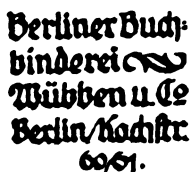 Berliner Buch-
binderei
Wübben u. Co
Berlin/Kochstr.
60/61.